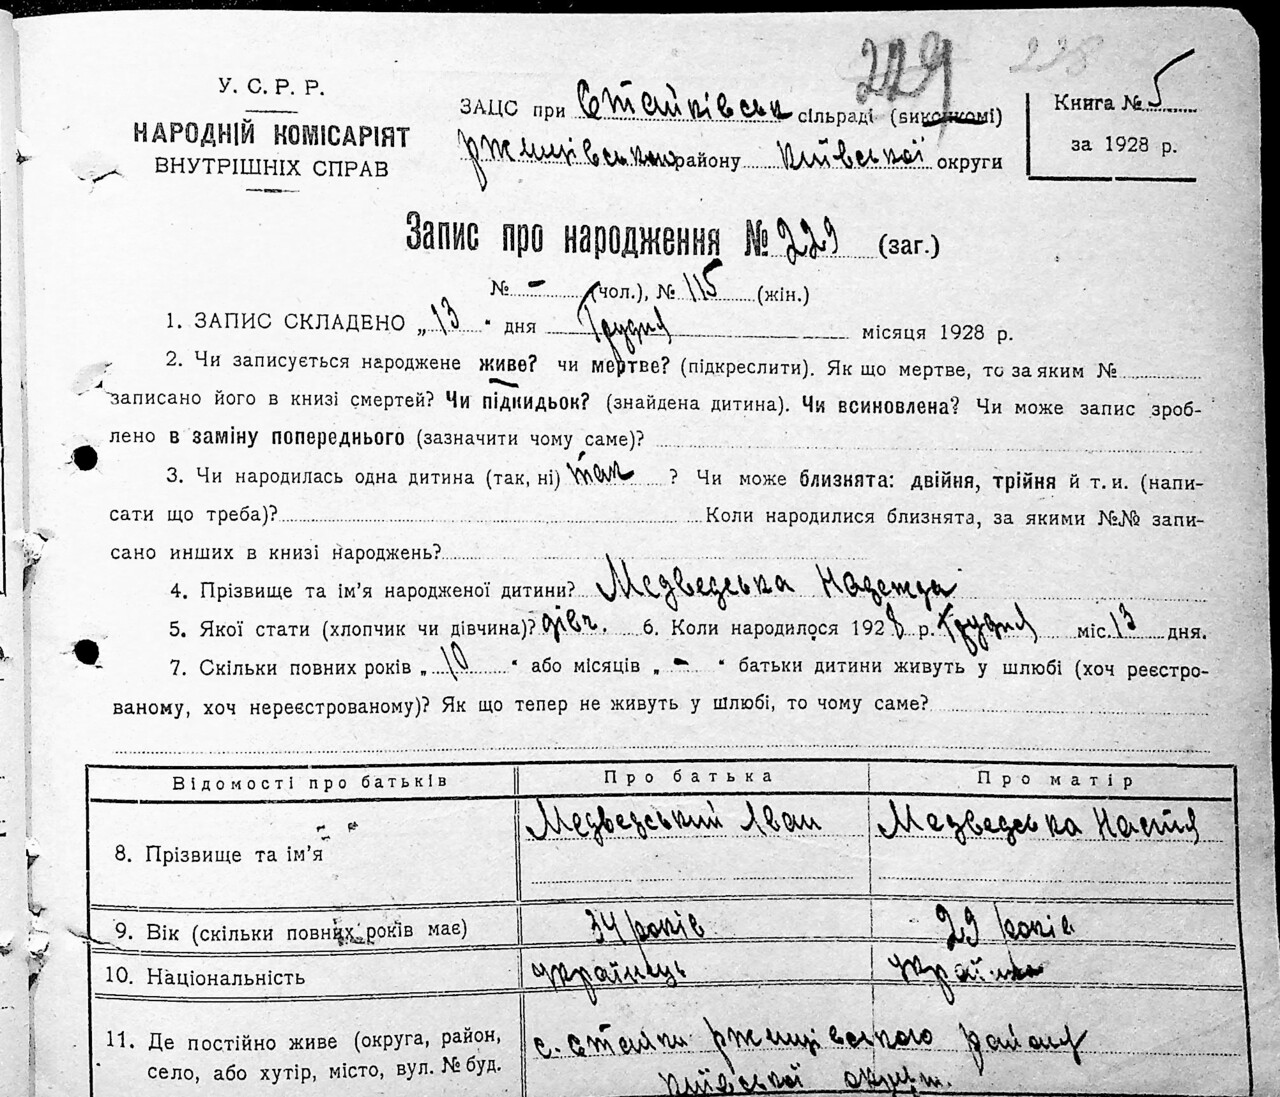 229 228
У. С. Р. Р.
НАРОДНІЙ КОМІСАРІЯТ
ВНУТРІШНІХ СПРАВ
ЗАЦС при Стайківськ сільраді (виконкомі)
Ржищівського району Київської округи
Книга № 5
за 1928 р.
Запис про народження № 229 (заг.)
№ - (чол.), № 115 (жін.)
1. ЗАПИС СКЛАДЕНО „ 13 “ дня Грудня місяця 1928 р.
2. Чи записується народжене живе? чи мертве? (підкреслити). Як що мертве, то за яким №
записано його в книзі смертей? Чи підкидьок? (знайдена дитина). Чи всиновлена? Чи може запис зроб-
лено в заміну попереднього (зазначити чому саме)?
3. Чи народилась одна дитина (так, ні) так ? Чи може близнята: двійня, трійня й т. и. (напи-
сати що треба)? Коли народилися близнята, за якими №№ запи-
сано инших в книзі народжень?
4. Прізвище та ім’я народженої дитини? Медведська Надежда
5. Якої стати (хлопчик чи дівчина)? дівч. 6. Коли народилося 1928 р. Грудня міс. 13 дня.
7. Скільки повних років „ 10 “ або місяців „ - “ батьки дитини живуть у шлюбі (хоч реєстро-
ваному, хоч нереєстрованому)? Як що тепер не живуть у шлюбі, то чому саме?
Відомості про батьків Про батька Про матір
8. Прізвище та ім’я Медведський Іван Медведська Настя
9. Вік (скільки повних років має) 34 років 29 років
10. Національність Українець Українка
11. Де постійно живе (округа, район,
село, або хутір, місто, вул. № буд.
с. Стайки Ржищівського району
Київської округи.